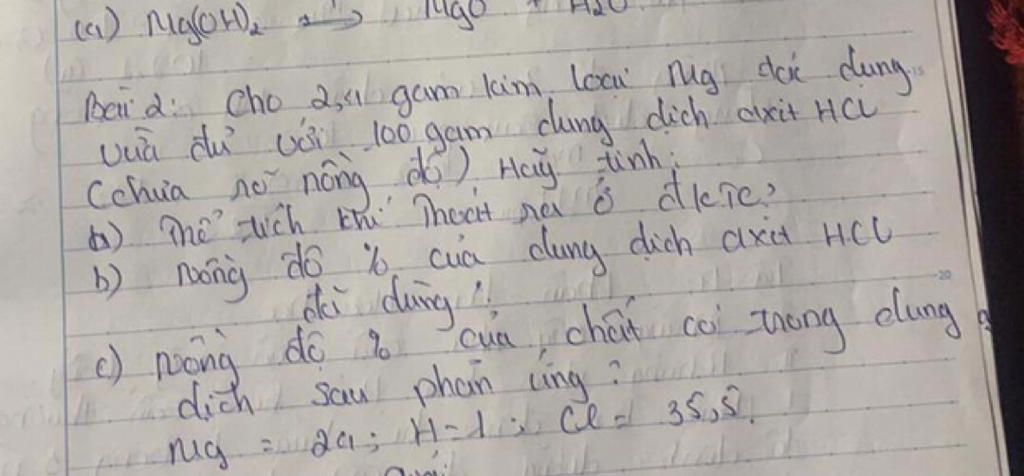 (a) Mg(OH)₂ → MgO + H₂O
Bài 2: Cho 2,4 gam kim loại Mg tác dụng
vừa đủ với 100 gam dung dịch axit HCl
(chưa rõ nồng độ) Hãy tính:
a) Thể tích khí thoát ra ở đktc?
b) Nồng độ % của dung dịch axit HCl
đã dùng?
c) Nồng độ % của chất có trong dung
dịch sau phản ứng?
Mg = 24; H = 1; Cl = 35,5.